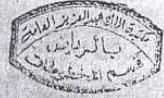 مكتبة الملك عبدالعزيز العامة
بالرياض
قسم المخطوطات